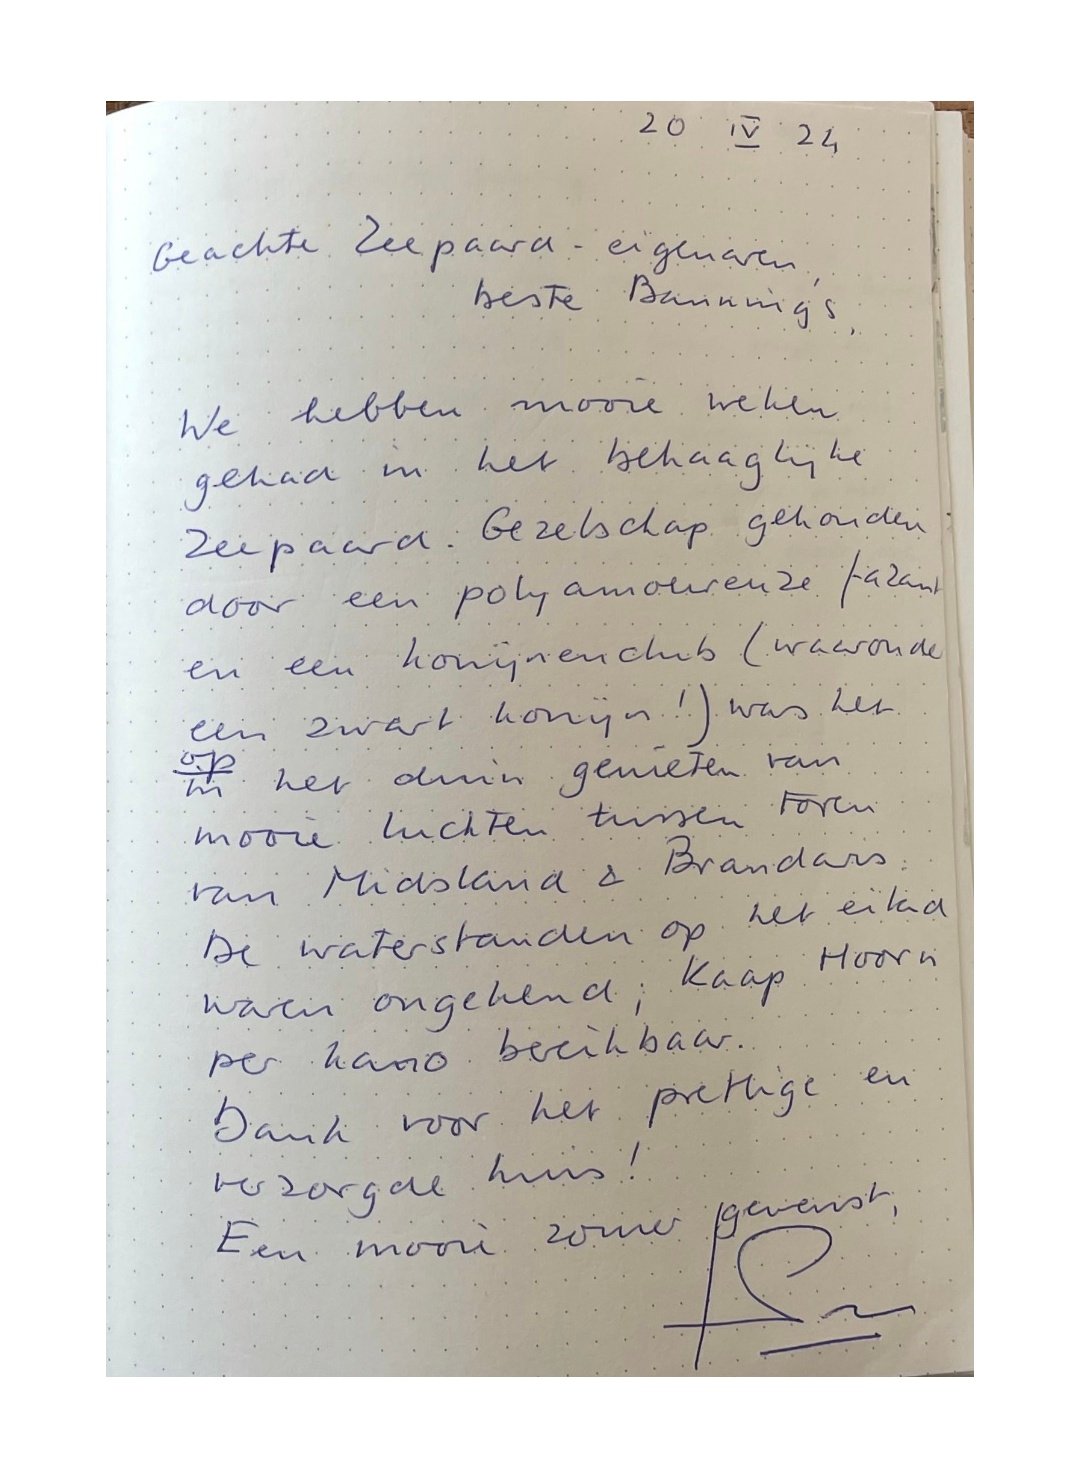 20 IV 24
Geachte Zeepaard-eigenaren,
beste Banning's,
We hebben mooie weken
gehad in het behaaglijke
Zeepaard. Gezelschap gehouden
door een polyamoureuze fazant
en een konijnenclub (waaronde
een zwart konijn!) was het
op
in het duin genieten van
mooie luchten tussen toren
van Midsland & Brandaris.
De waterstanden op het eiland
waren ongekend; Kaap Hoorn
per kano bereikbaar.
Dank voor het prettige en
verzorgde huis!
Een mooie zomer gewenst,